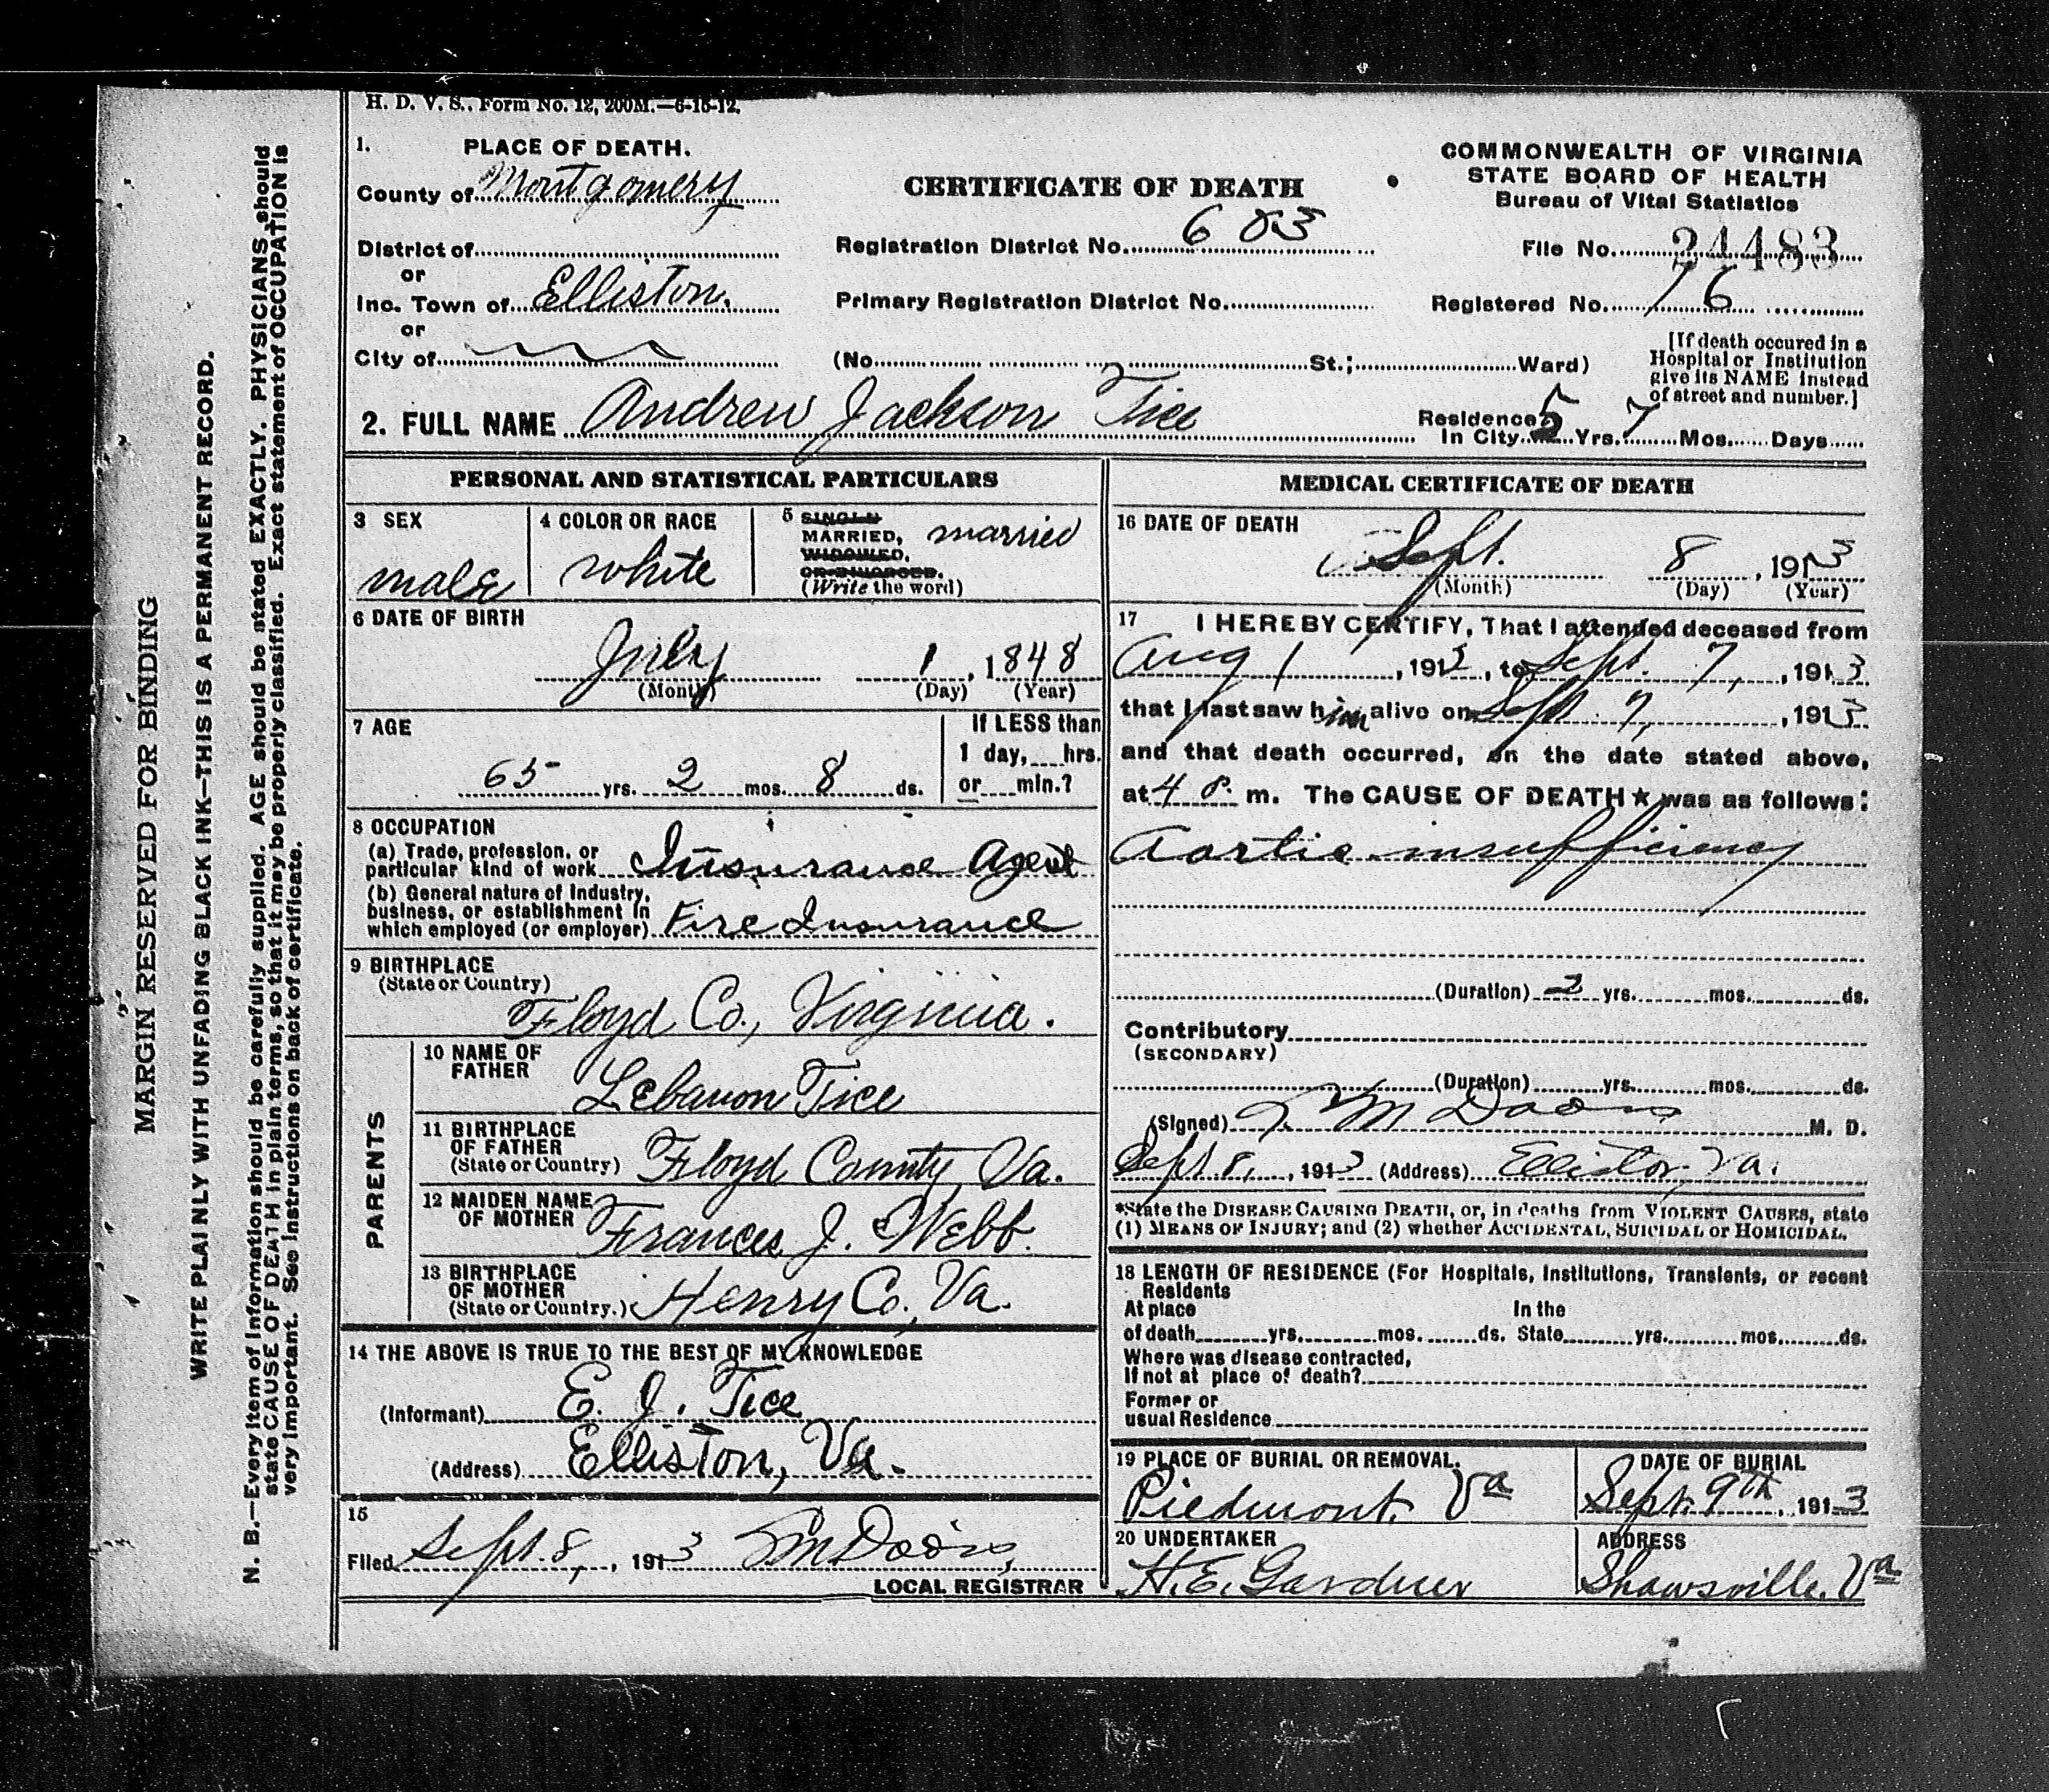 H. D. V. S., Form No. 12, 200M.—6-15-12.
1. PLACE OF DEATH.
County of Montgomery
District of
or
Inc. Town of Elliston,
or
City of
CERTIFICATE OF DEATH
Registration District No. 603
Primary Registration District No.
(No. St.; Ward)
COMMONWEALTH OF VIRGINIA
STATE BOARD OF HEALTH
Bureau of Vital Statistics
File No. 24483
Registered No. 76
[If death occured in a
Hospital or Institution
give its NAME instead
of street and number.]
2. FULL NAME Andrew Jackson Tice
Residence
In City 5 Yrs. 7 Mos. Days
PERSONAL AND STATISTICAL PARTICULARS
3 SEX
male
4 COLOR OR RACE
white
5 SINGLE
MARRIED, married
WIDOWED,
OR DIVORCED.
(Write the word)
6 DATE OF BIRTH
July 1, 1848
(Month) (Day) (Year)
7 AGE
65 yrs. 2 mos. 8 ds.
If LESS than
1 day, hrs.
or min.?
8 OCCUPATION
(a) Trade, profession, or
particular kind of work Insurance Agent
(b) General nature of Industry,
business, or establishment in
which employed (or employer) Fire Insurance
9 BIRTHPLACE
(State or Country)
Floyd Co., Virginia.
PARENTS
10 NAME OF
FATHER
Lebanon Tice
11 BIRTHPLACE
OF FATHER
(State or Country) Floyd County Va.
12 MAIDEN NAME
OF MOTHER Frances J. Webb.
13 BIRTHPLACE
OF MOTHER
(State or Country.) Henry Co., Va.
14 THE ABOVE IS TRUE TO THE BEST OF MY KNOWLEDGE
(Informant) E. J. Tice
(Address) Elliston, Va.
15
Filed Sept. 8, 1913
LOCAL REGISTRAR
MEDICAL CERTIFICATE OF DEATH
16 DATE OF DEATH
Sept. 8, 1913
(Month) (Day) (Year)
17 I HEREBY CERTIFY, That I attended deceased from
Aug 1, 1913, to Sept. 7, 1913
that I last saw him alive on Sept. 7, 1913
and that death occurred, on the date stated above,
at 4 m. The CAUSE OF DEATH★ was as follows:
Aortic insufficiency
(Duration) 2 yrs. mos. ds.
Contributory
(SECONDARY)
(Duration) yrs. mos. ds.
(Signed) M. D.
Sept. 8, 1913 (Address) Elliston, Va.
*State the DISEASE CAUSING DEATH, or, in deaths from VIOLENT CAUSES, state
(1) MEANS OF INJURY; and (2) whether ACCIDENTAL, SUICIDAL or HOMICIDAL.
18 LENGTH OF RESIDENCE (For Hospitals, Institutions, Transients, or recent
Residents
At place In the
of death yrs. mos. ds. State yrs. mos. ds.
Where was disease contracted,
If not at place of death?
Former or
usual Residence
19 PLACE OF BURIAL OR REMOVAL.
Piedmont, Va
DATE OF BURIAL
Sept. 9th, 1913
20 UNDERTAKER
H. E. Gardner
ADDRESS
Shawsville, Va
MARGIN RESERVED FOR BINDING
WRITE PLAINLY WITH UNFADING BLACK INK—THIS IS A PERMANENT RECORD.
N. B.—Every item of information should be carefully supplied. AGE should be stated EXACTLY. PHYSICIANS should
state CAUSE OF DEATH in plain terms, so that it may be properly classified. Exact statement of OCCUPATION is
very important. See instructions on back of certificate.